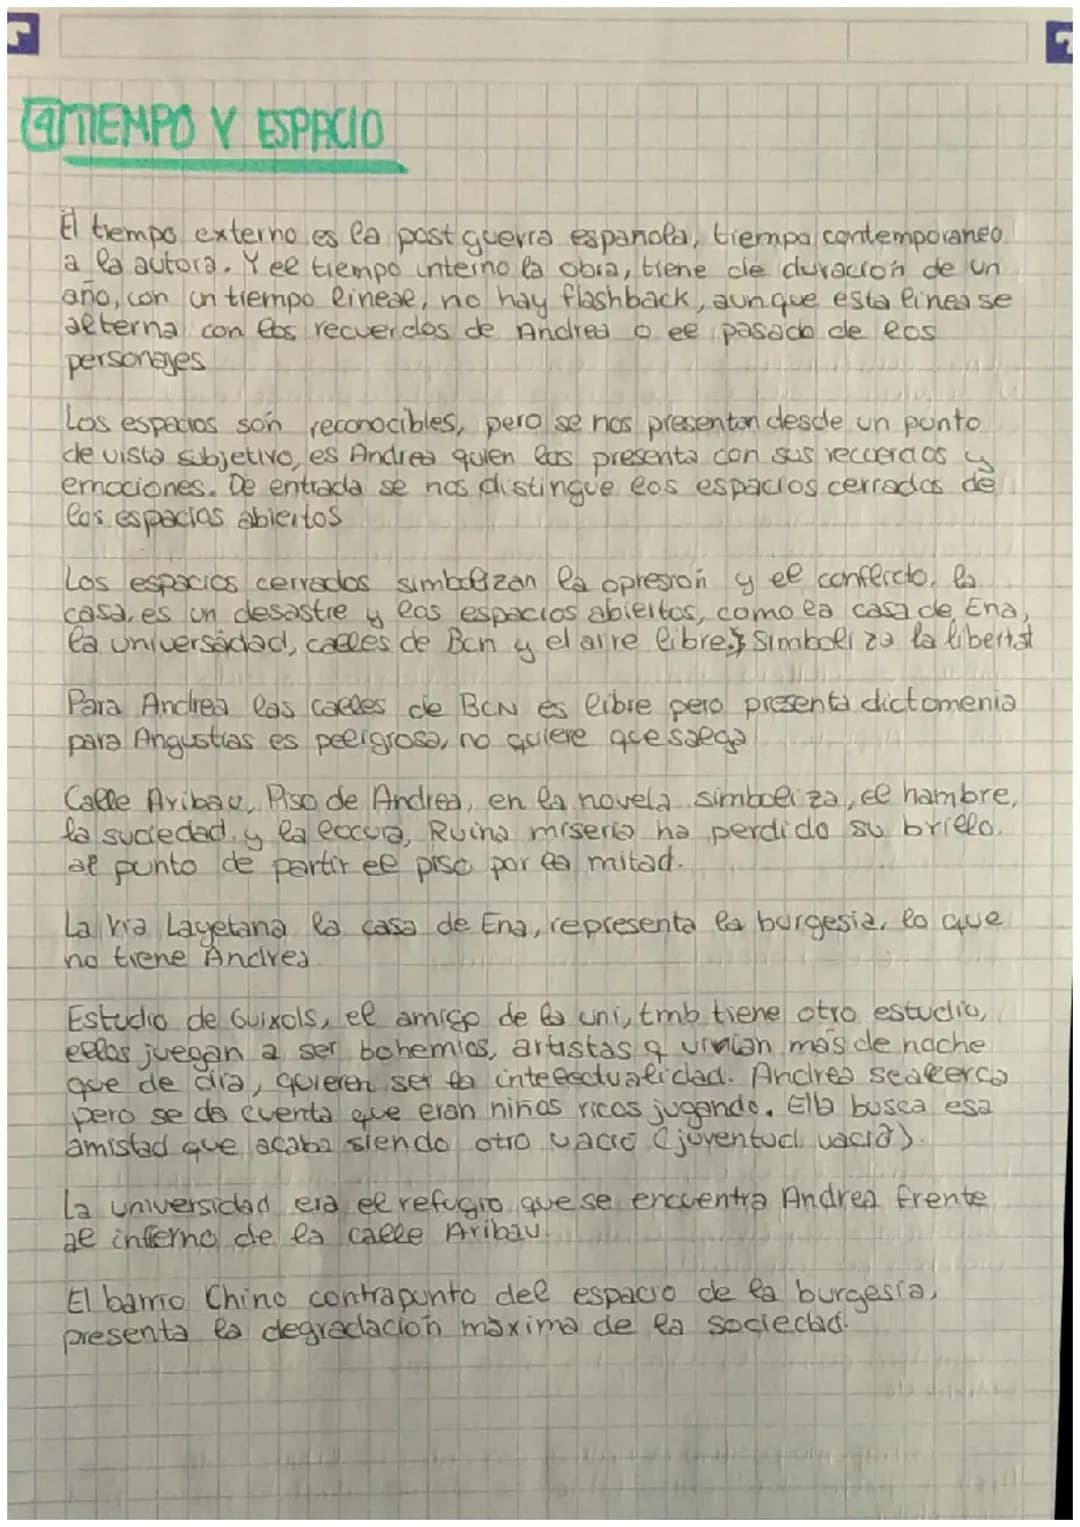 4 TIEMPO Y ESPACIO
El tiempo externo es la postguerra española, tiempo contemporaneo
a la autora. Y el tiempo interno la obra, tiene de duración de un
año, con un tiempo lineal, no hay flashback, aunque esta linea se
alterna con los recuerdos de Andrea o el pasado de los
personajes
Los espacios són reconocibles, pero se nos presentan desde un punto
de vista subjetivo, es Andrea quien los presenta con sus recuerdos y
emociones. De entrada se nos distingue los espacios cerrados de
los espacios abiertos
Los espacios cerrados simbolizan la opresión y el conflicto, la
casa, es un desastre y los espacios abiertos, como la casa de Ena,
la universidad, calles de Bcn y el aire libre. Simboliza la libertat
Para Andrea las calles de BCN es libre pero presenta dictomenia
para Angustias es peligrosa, no quiere que salga
Calle Aribau, Piso de Andrea, en la novela simboliza, el hambre,
la suciedad y la locura, Ruina miseria ha perdido su brillo.
al punto de partir el piso por la mitad.
La Via Layetana la casa de Ena, representa la burgesia, lo que
no tiene Andrea
Estudio de Guixols, el amigo de la uni, tmb tiene otro estudio,
ellos juegan a ser bohemios, artistas q vivian más de noche
que de día, quieren ser la intelectualidad. Andrea se acerca
pero se da cuenta que eran niños ricos jugando. Ella busca esa
amistad que acaba siendo otro vacio (juventud vacia).
La universidad era el refugio que se encuentra Andrea frente
al infierno de la calle Aribau.
El barrio Chino contrapunto del espacio de la burgesía,
presenta la degradación máxima de la sociedad.